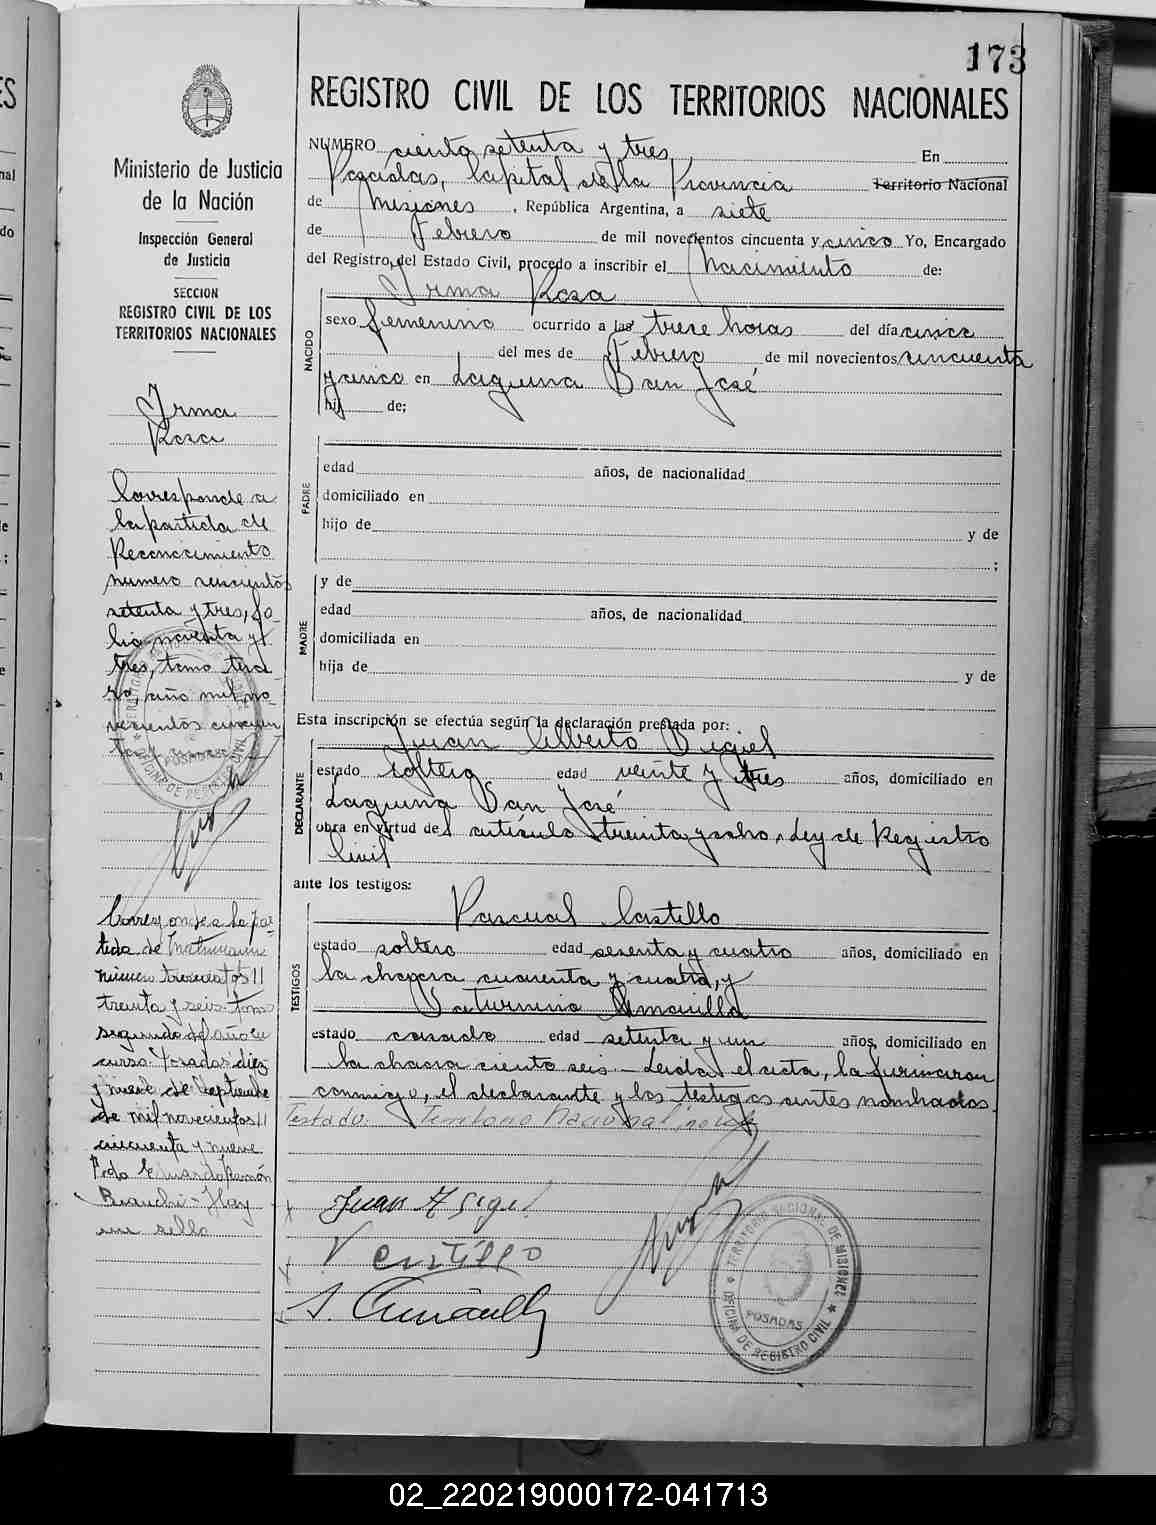 173
REGISTRO CIVIL DE LOS TERRITORIOS NACIONALES
Ministerio de Justicia
de la Nación
Inspección General
de Justicia
SECCION
REGISTRO CIVIL DE LOS
TERRITORIOS NACIONALES
Irma
Rosa
Corresponde a
la partida de
Reconocimiento
numero
setenta y tres, fo-
lio noventa y
tres, tomo terce-
ro año mil no-
vecientos cincuen
Corresponde a la par-
tida de Matrimonio
número trescientos
treinta y seis tomo
segundo del año en
curso. Posadas diez
y nueve de Septiembre
de mil novecientos
cincuenta y nueve
Fdo Eduardo Ramón
Bianchi - Hay
un sello
NUMERO ciento setenta y tres En
Posadas, Capital de la Provincia Territorio Nacional
de Misiones , República Argentina, a siete
de Febrero de mil novecientos cincuenta y cinco Yo, Encargado
del Registro del Estado Civil, procedo a inscribir el Nacimiento de:
Irma Rosa
NACIDO
sexo femenino ocurrido a las trece horas del día cinco
del mes de Febrero de mil novecientos cincuenta
y cinco en Laguna San José
hij de;
PADRE
edad años, de nacionalidad
domiciliado en
hijo de y de
;
MADRE
y de
edad años, de nacionalidad
domiciliada en
hija de y de
Esta inscripción se efectúa según la declaración prestada por:
Juan Alberto
DECLARANTE
estado soltero edad veinte y tres años, domiciliado en
Laguna San José
obra en virtud del artículo treinta y ocho, Ley de Registro
Civil
ante los testigos:
Pascual Castillo
TESTIGOS
estado soltero edad sesenta y cuatro años, domiciliado en
la chacra cuarenta y cuatro, y
Saturnino Amarilla
estado casado edad setenta y un años, domiciliado en
la chacra ciento seis - Leída el acta, la firmaron
conmigo, el declarante y los testigos antes nombrados.
Testado: Territorio Nacional, no vale
Juan A
P Castillo
S. Amarilla
TERRITORIO NACIONAL DE MISIONES
POSADAS
OFICINA DE REGISTRO CIVIL
02_220219000172-041713